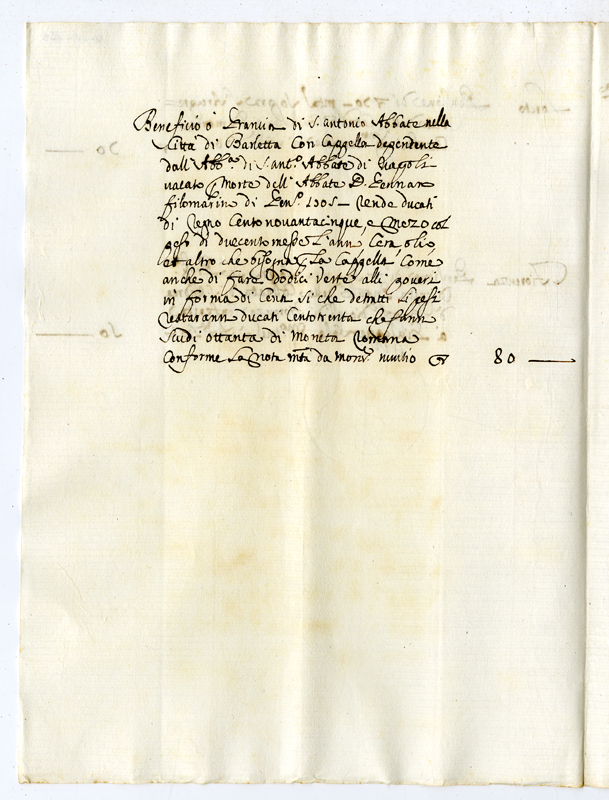 Beneficio ò Grancia di S. Antonio Abbate nella
Città di Barletta con Cappella dependente
dall'Abb.ª di S. Ant.º Abbate di Napoli
vacato p morte dell'Abbate D. Gennaro
filomarin di Gen.º 1705 - Rende ducati
di Regno Cento novanta cinque, e mezo col
peso di duecento messe l'ann Cera olio,
et altro che bisogna p La Cappella Come
anche di fare dodici veste alli poveri
in forma di Cena si che detratti li pesi
restarann ducati Centotrenta che fann
scudi ottanta di Moneta Romana
Conforme La Nota mta da Mons.r nuntio 80